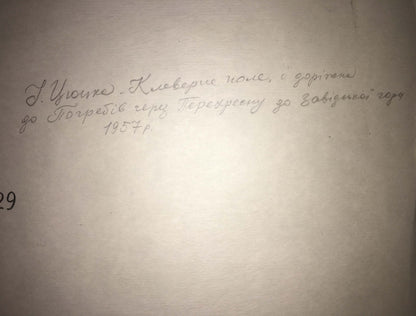 І. Цюпка - Клеверне поле, і доріжка
до Погребів через Перехресну до Завідської гори
1957 р
29